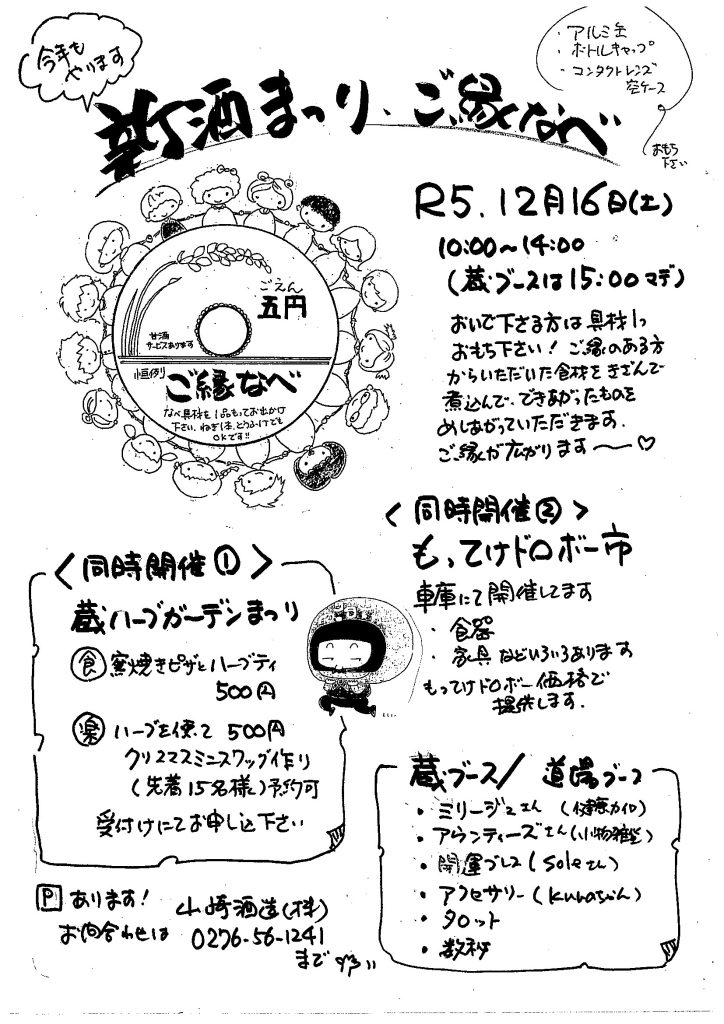 今年も
やります
・アルミ缶
・ボトルキャップ
・コンタクトレンズ
空ケース
おもち
下さい
新酒まつり、ご縁なべ
R5.12月16日(土)
10:00～14:00
(蔵・ブースは15:00マデ)
おいで下さる方は具材1つ
おもち下さい！ご縁のある方
からいただいた食材をきざんで
煮込んで、できあがったものを
めしあがっていただきます。
ご縁が広がります〜〜♡
ごえん
五円
甘酒
サービスあります
恒例
ご縁なべ
なべ具材を1品もってお出かけ
下さい。ねぎ1本、とうふ1ケでも
OKです!!
<同時開催①>
蔵ハーブガーデンまつり
食 窯焼きピザとハーブティ
500円
楽 ハーブを使って 500円
クリスマスミニスワッグ作り
(先着15名様)予約可
受付けにてお申し込下さい
<同時開催②>
もってけドロボー市
車庫にて開催してます
・食器
・家具 などいろいろあります
もってけドロボー価格で
提供します。
蔵ブース/道場ブース
・ミリージュさん (健康カイロ)
・アウンティーズさん (小物雑貨)
・開運ブレス (Soleさん)
・アクセサリー (kunaちゃん)
・タロット
・数秘
P あります！
お問合わせは
山崎酒造(株)
0276-56-1241
まで